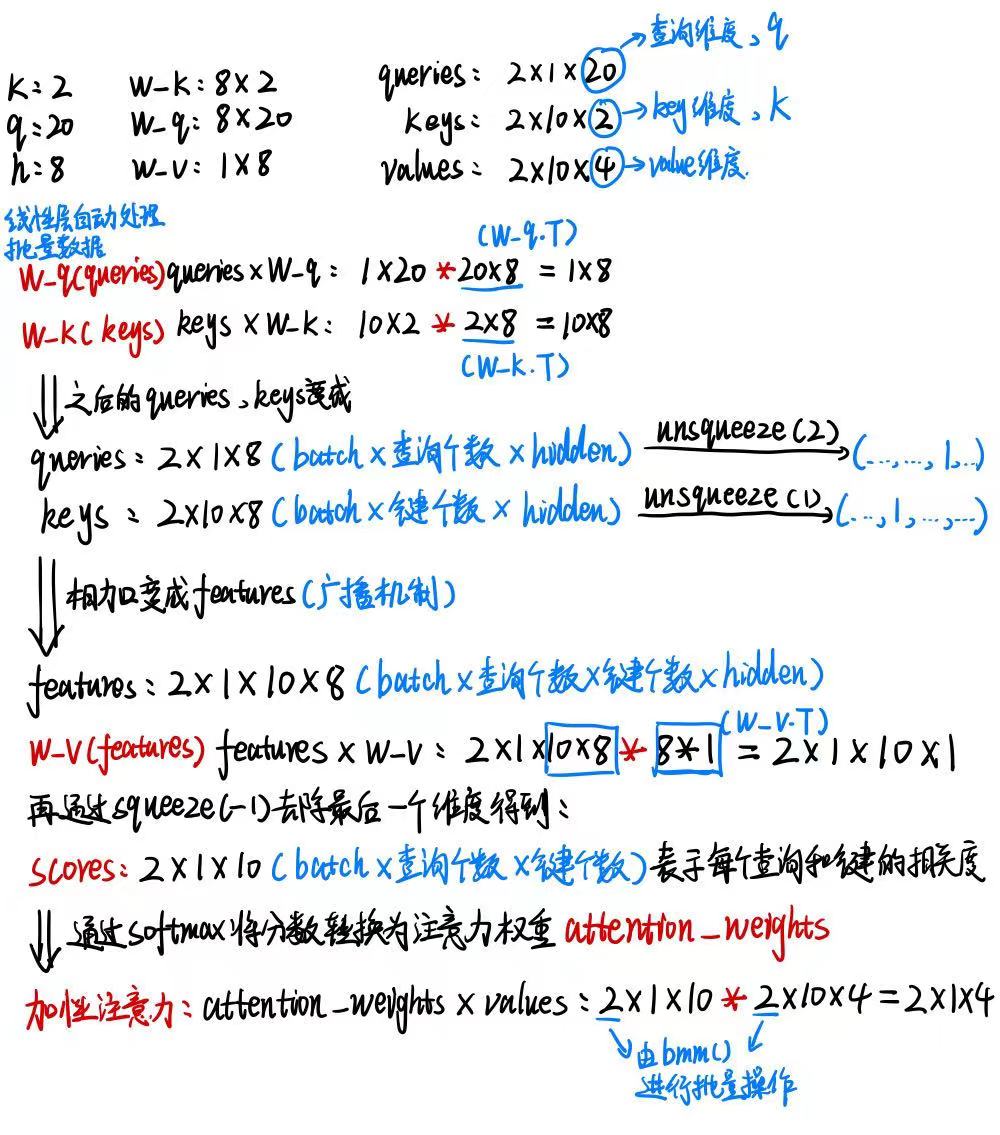 k:2 W_k:8×2 queries: 2×1×20 →查询维度、q
q:20 W_q:8×20 keys: 2×10×2 →key维度、k
h:8 W_v:1×8 values: 2×10×4 →value维度.
线性层自动处理
批量数据
(W_q.T)
W_q(queries) queries×W_q: 1×20 * 20×8 = 1×8
W_k(keys) keys×W_k: 10×2 * 2×8 = 10×8
(W_k.T)
⇓ 之后的queries、keys变成
queries: 2×1×8 (batch×查询个数×hidden) unsqueeze(2) → (...,...,1,...)
keys: 2×10×8 (batch×键个数×hidden) unsqueeze(1) → (...,1,...,...)
⇓ 相加变成features(广播机制)
features: 2×1×10×8 (batch×查询个数×键个数×hidden)
(W_v.T)
W_v(features) features×W_v: 2×1×10×8 * 8*1 = 2×1×10×1
再通过squeeze(-1)去除最后一个维度得到:
scores: 2×1×10 (batch×查询个数×键个数) 表示每个查询和键的相关度
⇓ 通过softmax将分数转换为注意力权重 attention_weights
加性注意力: attention_weights×values: 2×1×10 * 2×10×4=2×1×4
由bmm()
进行批量操作